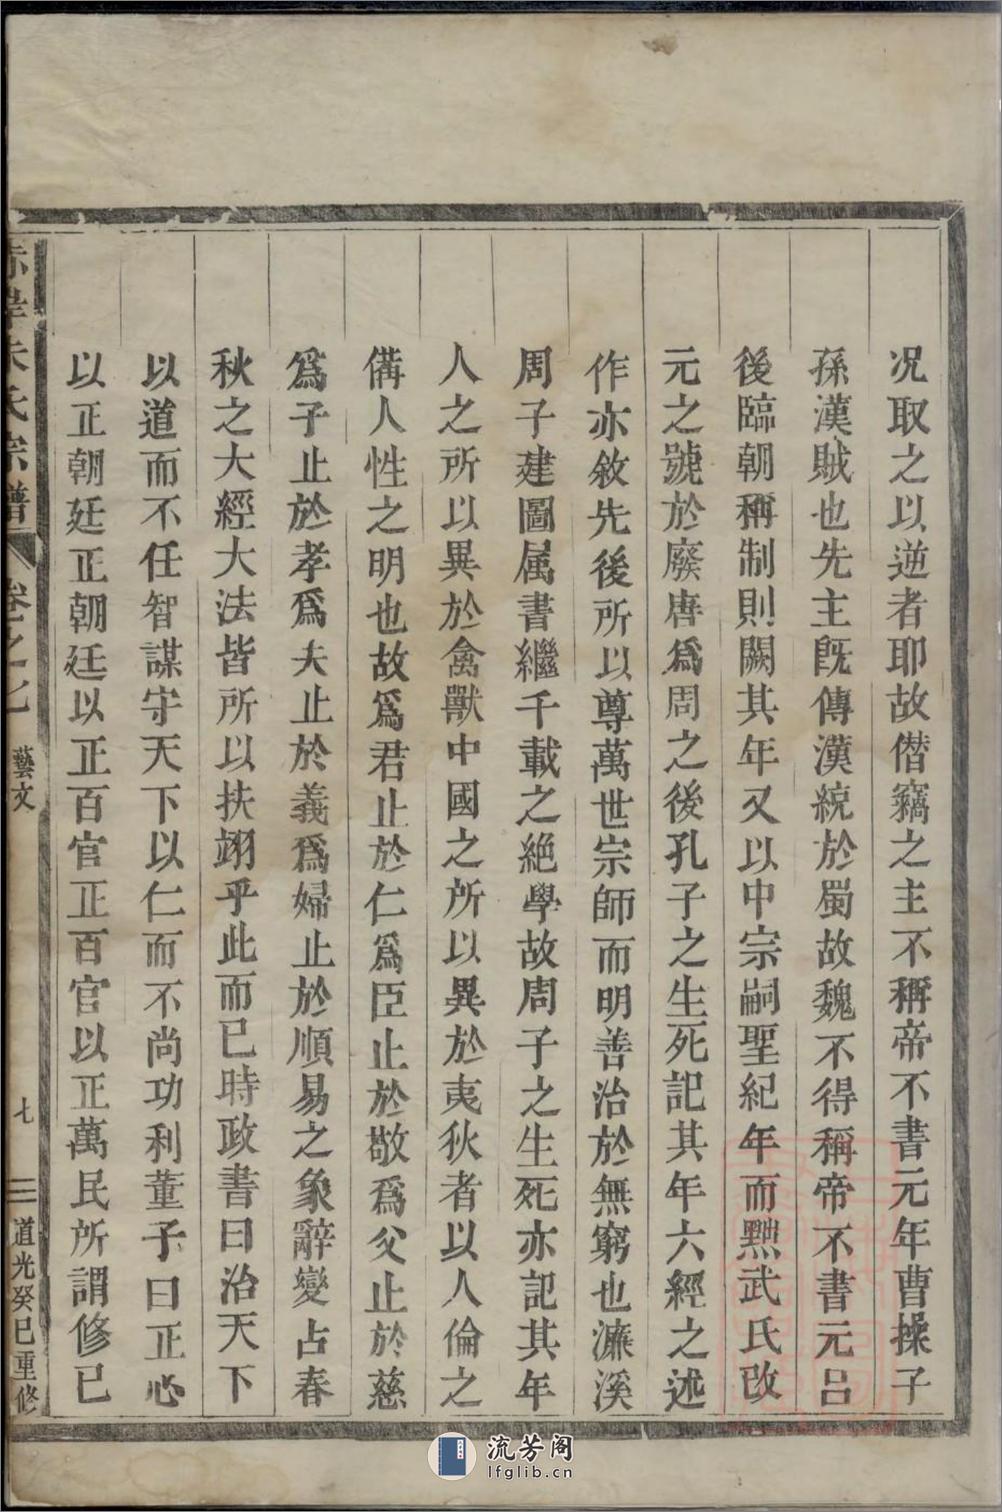 况取之以逆者耶故僣竊之主不稱帝不書元年曹操子
孫漢賊也先主旣傳漢統於蜀故魏不得稱帝不書元呂
後臨朝稱制則闕其年又以中宗嗣聖紀年而黜武氏改
元之號於廢唐爲周之後孔子之生死記其年六經之述
作亦敘先後所以尊萬世宗師而明善治於無窮也濂溪
周子建圖属書繼千載之絶學故周子之生死亦記其年
人之所以異於禽獸中國之所以異於夷狄者以人倫之
備人性之明也故爲君止於仁爲臣止於敬爲父止於慈
爲子止於孝爲夫止於義爲婦止於順易之象辭變占春
秋之大經大法皆所以扶翊乎此而已時政書曰治天下
以道而不任智謀守天下以仁而不尚功利董子曰正心
以正朝廷正朝廷以正百官正百官以正萬民所謂修已
朱氏宗譜 卷之七 藝文 七 道光癸巳重修
流芳阁
lfglib.cn